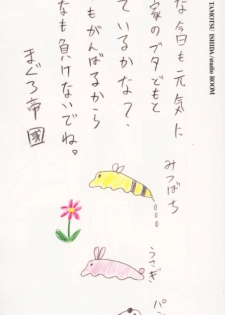 な今日も元気に
家のブタどもと
ているかな?、
もがんばるから
なも負けないでね。
まぐろ帝国
みつばち
うさぎ
パン
TAMOTSU ISHIDA/studio ROOM